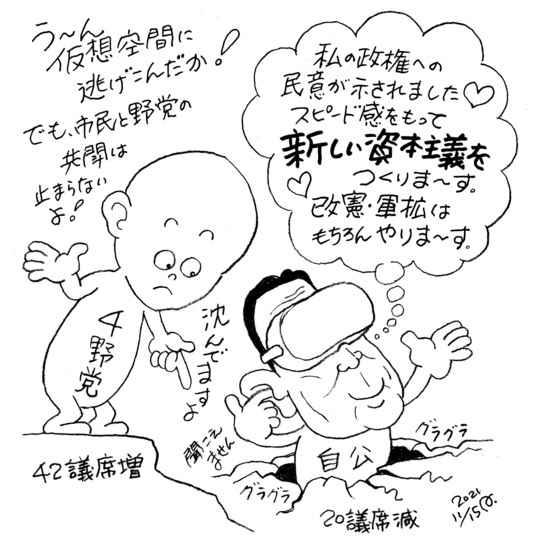 う〜ん
仮想空間に
逃げこんだか!
でも、市民と野党の
共闘は
止まらない
よ!
私の政権への
民意が示されました♡
スピード感をもって
新しい資本主義を
つくりま〜す。
♡改憲・軍拡は
もちろんやりま〜す。
4野党
沈んでますよ
42議席増
聞こえ
ません
自公
グラグラ
グラグラ
20議席減
2021
11/15